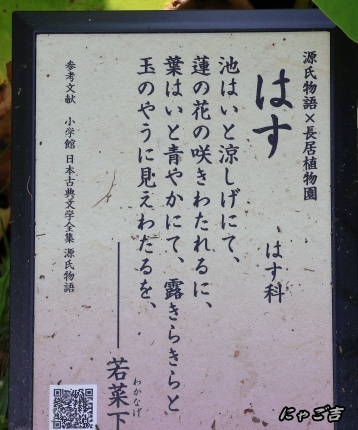 源氏物語×長居植物園
はす
はす科
池はいと涼しげにて、
蓮の花の咲きわたれるに、
葉はいと青やかにて、露きらきらと
玉のやうに見えわたるを、
――若菜下
わかなげ
参考文献　小学館 日本古典文学全集 源氏物語
にゃご吉